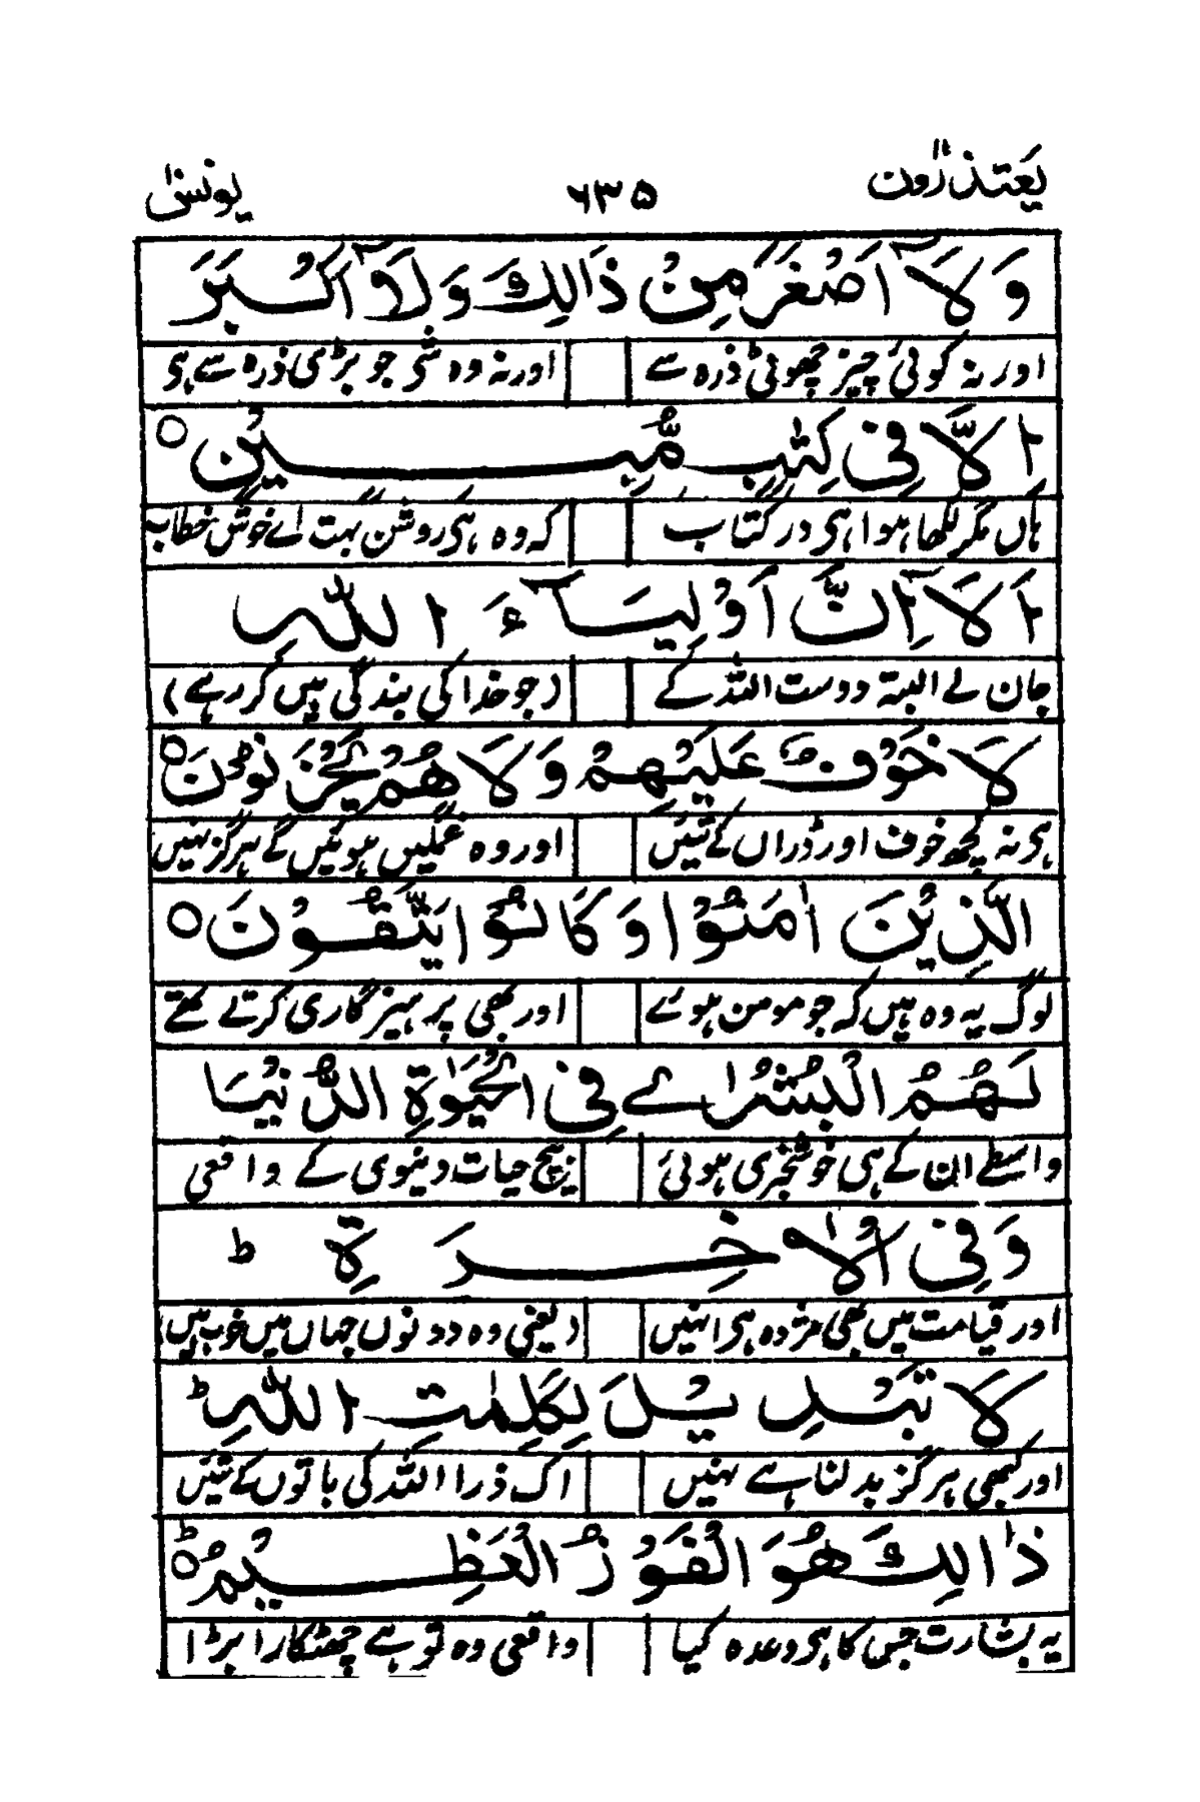 یعتذرون ۶۳۵ یونس
وَلَآ اَصْغَرَ مِنْ ذَالِكَ وَلَآ اَكْبَرَ
اور نہ کوئی چیز چھوٹی ذرہ سے اور نہ وہ شی جو بڑی ذرہ سے ہی
اِلَّا فِیْ كِتٰبٍ مُّبِیْنٍ ○
ہاں مگر لکھا ہوا ہی در کتاب کہ وہ ہی روشن بہت اے خوش خطاب
اَلَآ اِنَّ اَوْلِیَآءَ اللّٰهِ
جان لے البتہ دوست اللہ کے (جو خدا کی بندگی ہیں کر رہے)
لَا خَوْفٌ عَلَیْهِمْ وَلَا هُمْ یَحْزَنُوْنَ ○
ہی نہ کچھ خوف اور ڈر اں کے تئیں اور وہ غمگیں ہوئیں گے ہرگز نہیں
الَّذِیْنَ اٰمَنُوْا وَ كَانُوْا یَتَّقُوْنَ ○
لوگ یہ وہ ہیں کہ جو مومن ہوئے اور بھی پرہیزگاری کرتے تھے
لَهُمُ الْبُشْرٰے فِی الْحَیٰوةِ الدُّنْیَا
واسطے ان کے ہی خوشخبری ہوئی بیچ حیات دنیوی کے واقعی
وَفِی الْاٰخِرَةِ ط
اور قیامت میں بھی مژدہ ہی انہیں (یعنی وہ دونوں جہاں میں خوب ہیں)
لَا تَبْدِیْلَ لِكَلِمٰتِ اللّٰهِ ط
اور کبھی ہرگز بدلنا ہے نہیں اک ذرا اللہ کی باتوں کے تئیں
ذٰالِكَ هُوَ الْفَوْزُ الْعَظِیْمُ ○ ط
یہ بشارت جس کا ہی وعدہ کیا واقعی وہ تو ہے چھٹکارا بڑا